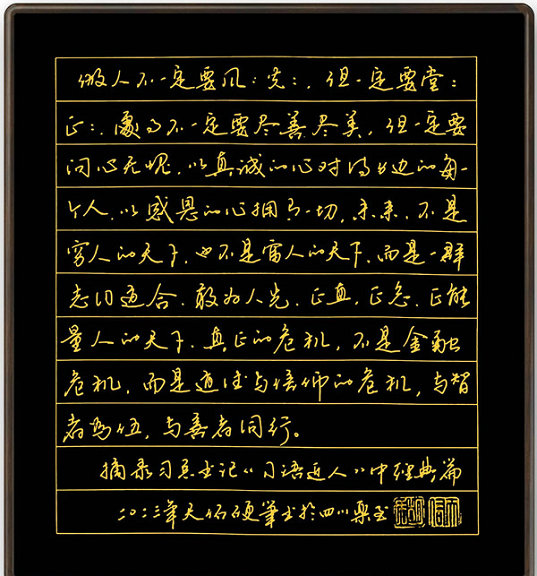 做人不一定要风:光:，但一定要堂:
正:，处事不一定要尽善尽美，但一定要
问心无愧，以真诚的心对待身边的每一
个人，以感恩的心拥有一切，未来，不是
穷人的天下，也不是富人的天下，而是一群
志同道合，敢为人先，正直，正念，正能
量人的天下，真正的危机，不是金融
危机，而是道德与信仰的危机，与智
者为伍，与善者同行。
摘录习总书记《习语近人》中经典篇
二〇二三年天佑硬筆书於四川